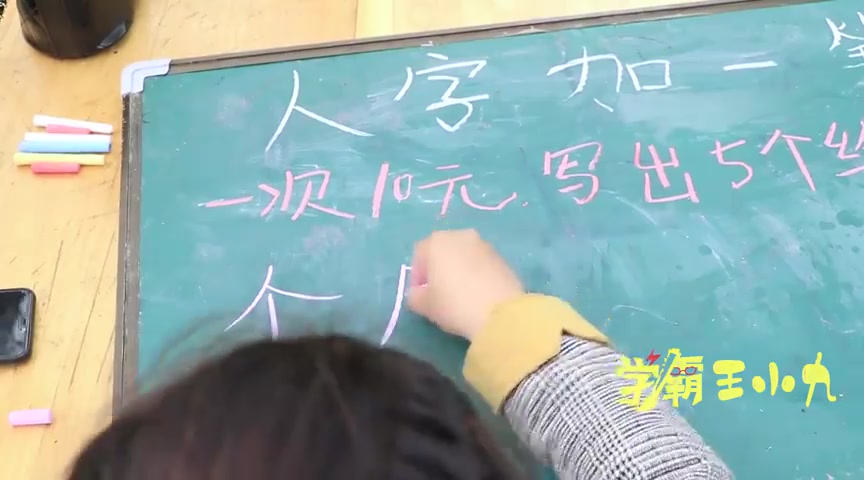 人字加一
一次10元.写出5个
个
学霸王小九